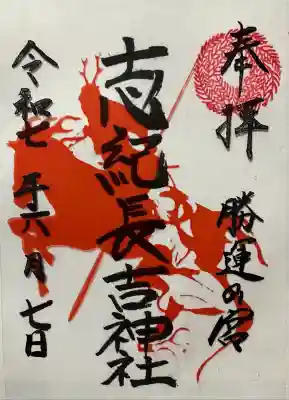 奉拝
勝運の宮
志紀長吉神社
令和七年六月七日